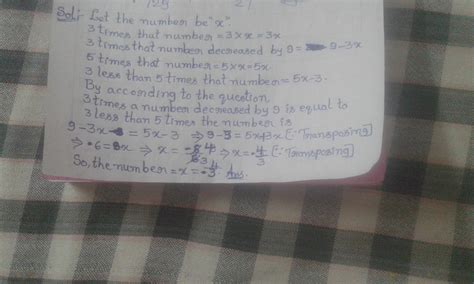 Sol:- Let the number be "x"
3 times that number = 3×x = 3x
3 times that number decreased by 9 = 9-3x
5 times that number = 5×x = 5x
3 less than 5 times that number = 5x-3.
By according to the question,
3 times a number decreased by 9 is equal to
3 less than 5 times the number is
9-3x = 5x-3 ⇒ 9-3 = 5x+3x [∵Transposing]
⇒ 6 = 8x ⇒ x = ⇒ x = [∵Transposing]
So, the number = x = Ans.